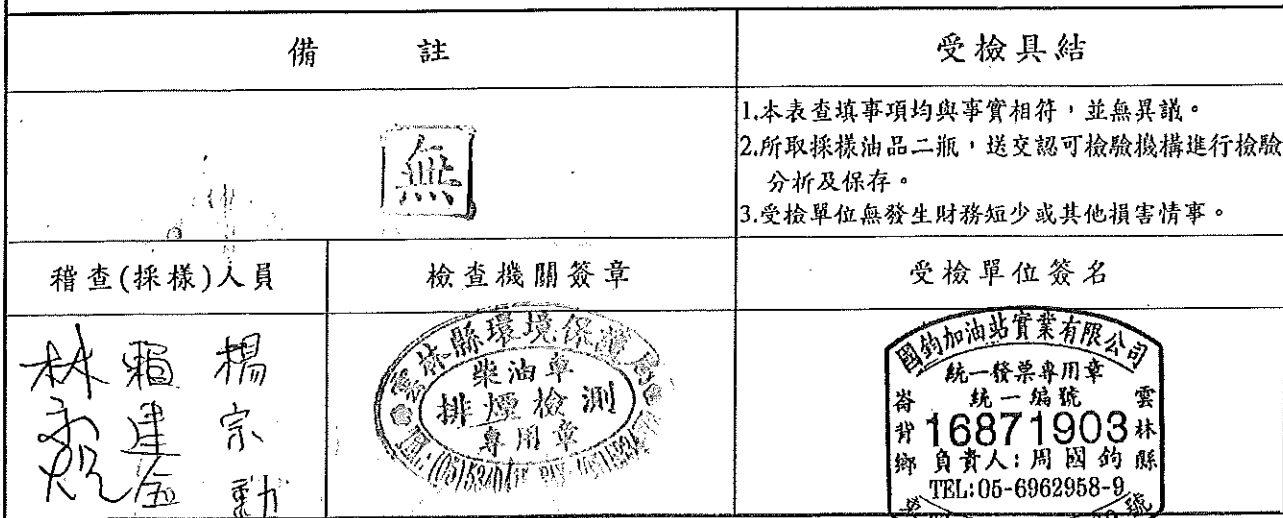 備註
受檢具結
無
1.本表查填事項均與事實相符，並無異議。
2.所取採樣油品二瓶，送交認可檢驗機構進行檢驗
分析及保存。
3.受檢單位無發生財務短少或其他損害情事。
稽查(採樣)人員
檢查機關簽章
受檢單位簽名
楊宗勳
賴建
林
雲林縣環境保護局
柴油車
排煙檢測
專用章
國鈞加油站實業有限公司
統一發票專用章
統一編號
16871903
負責人:周國鈞
TEL:05-6962958-9
雲林縣
崙背鄉
號